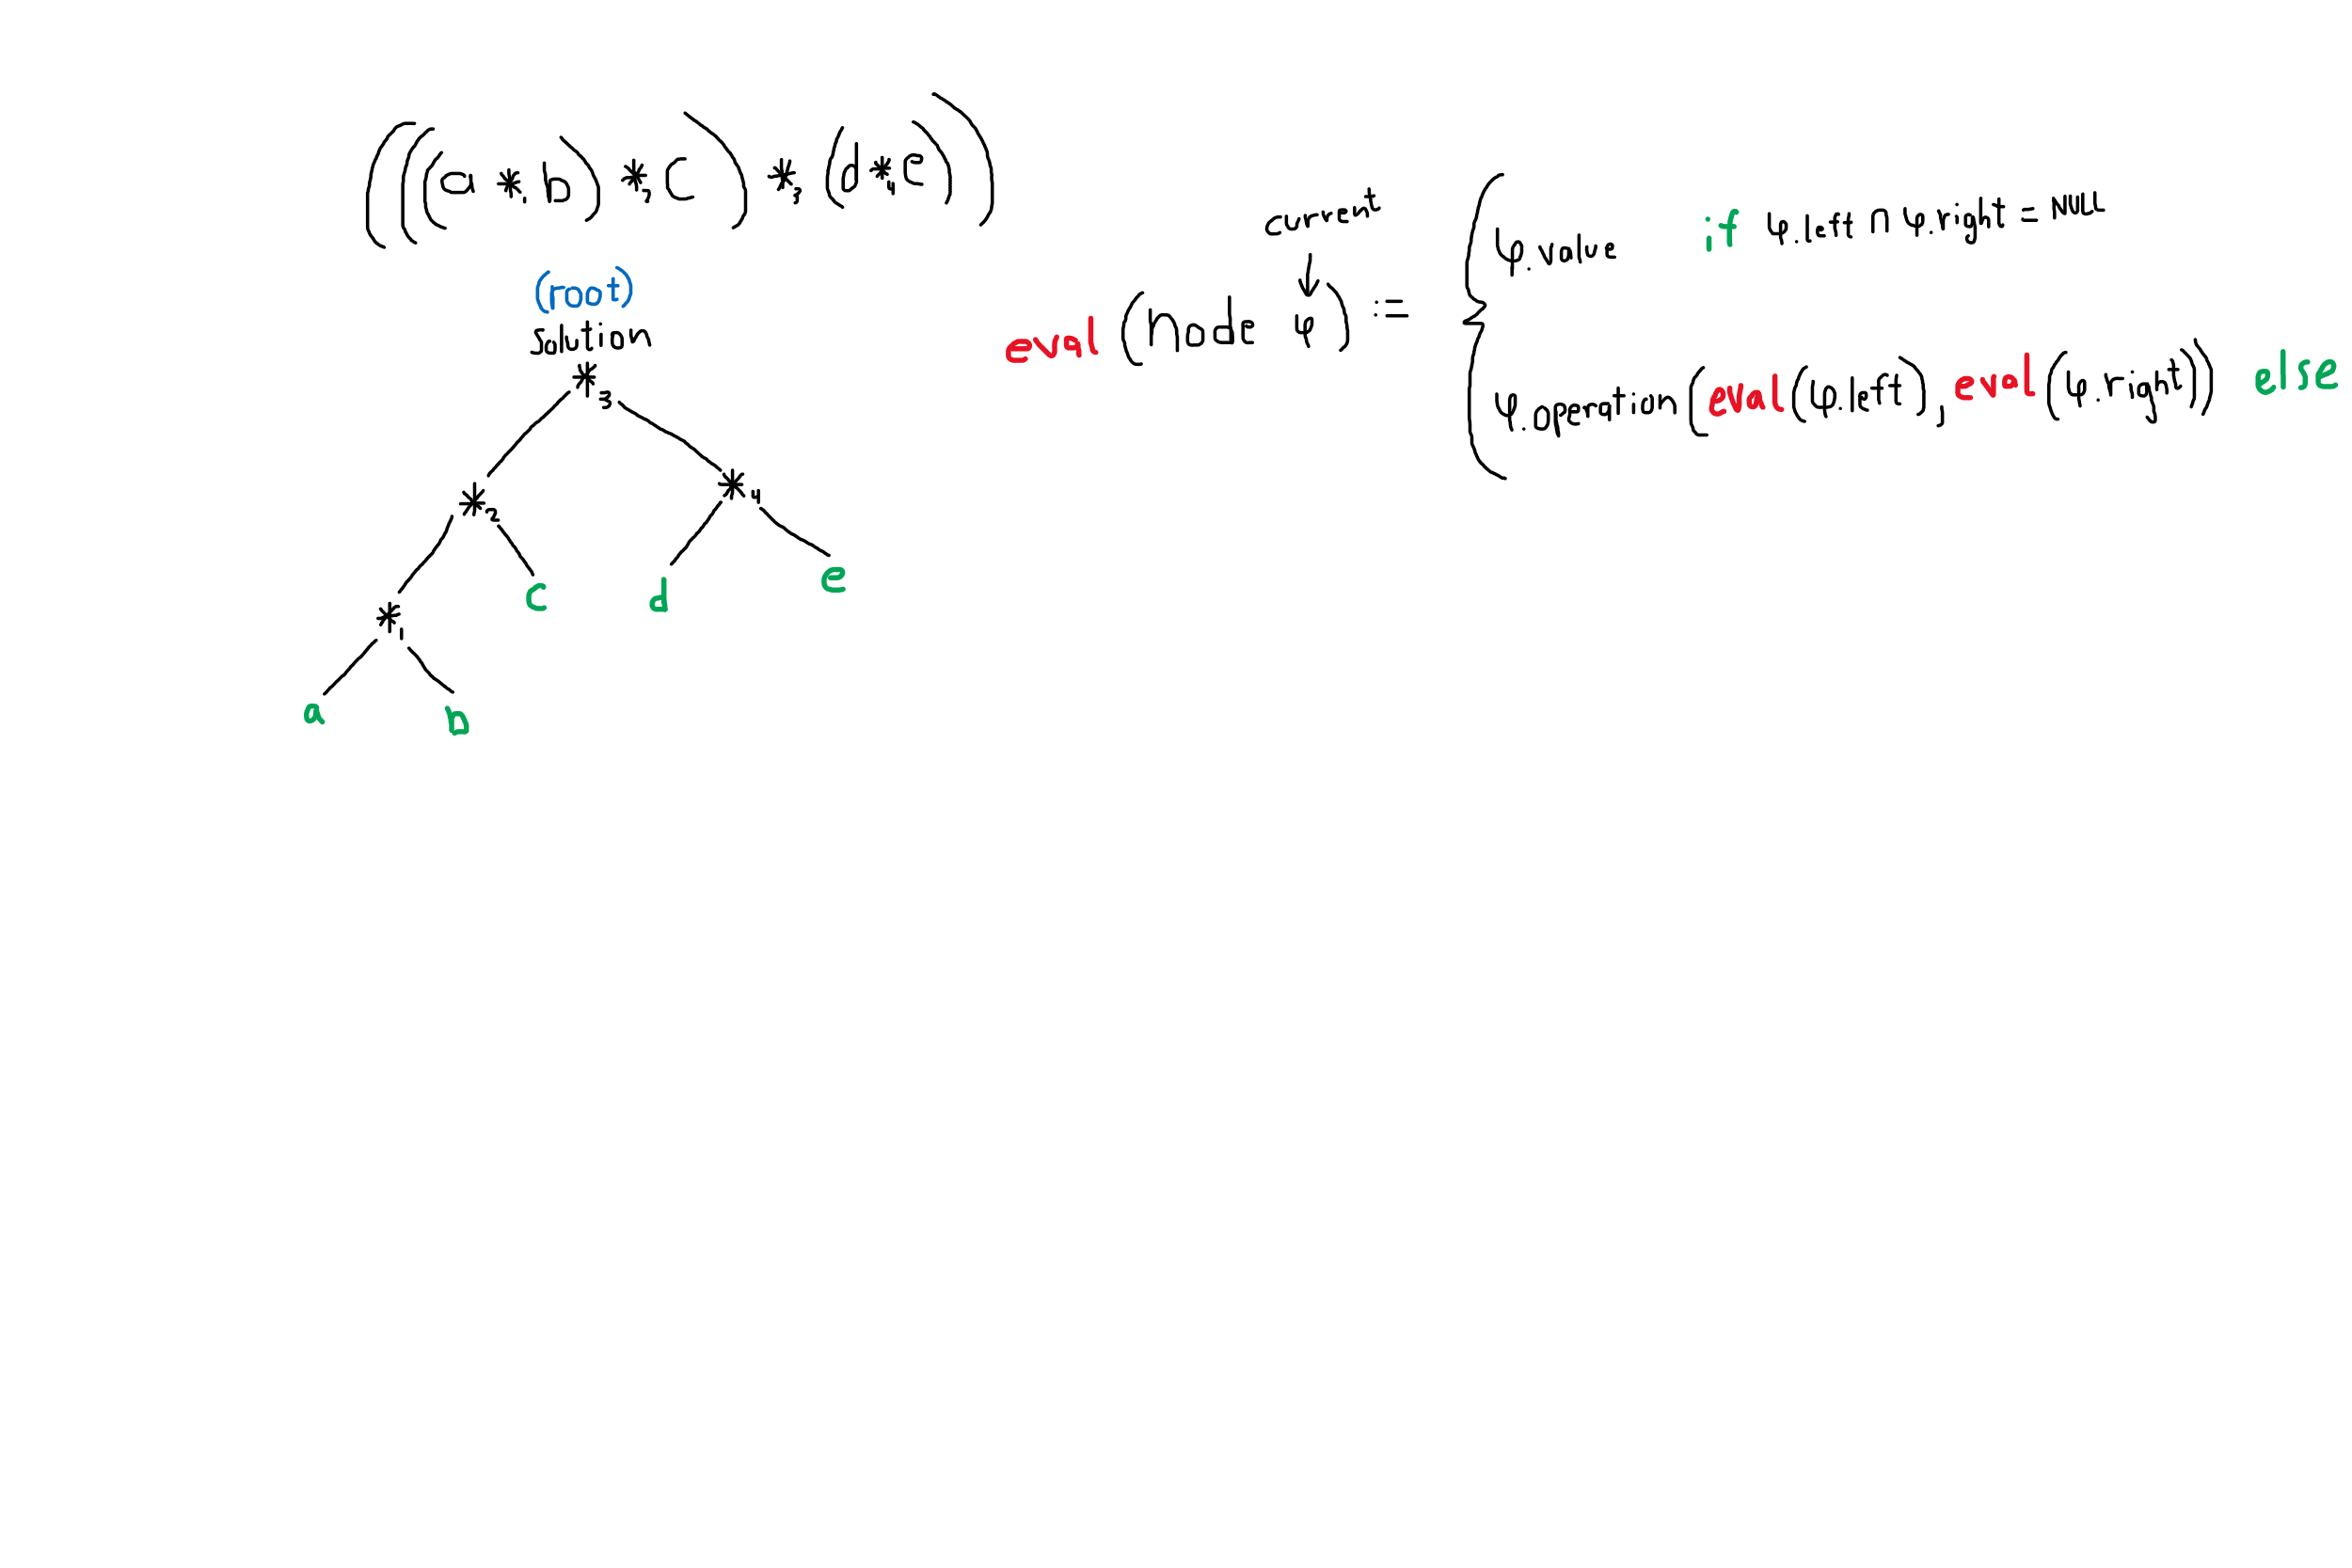 (((a *₁ b) *₂ c) *₃ (d *₄ e))
(root)
solution
*₃
*₂
*₄
c
d
e
*₁
a
b
current
eval (node φ) :=
φ.value if φ.left ∩ φ.right = NULL
φ.operation(eval(φ.left), eval(φ.right)) else